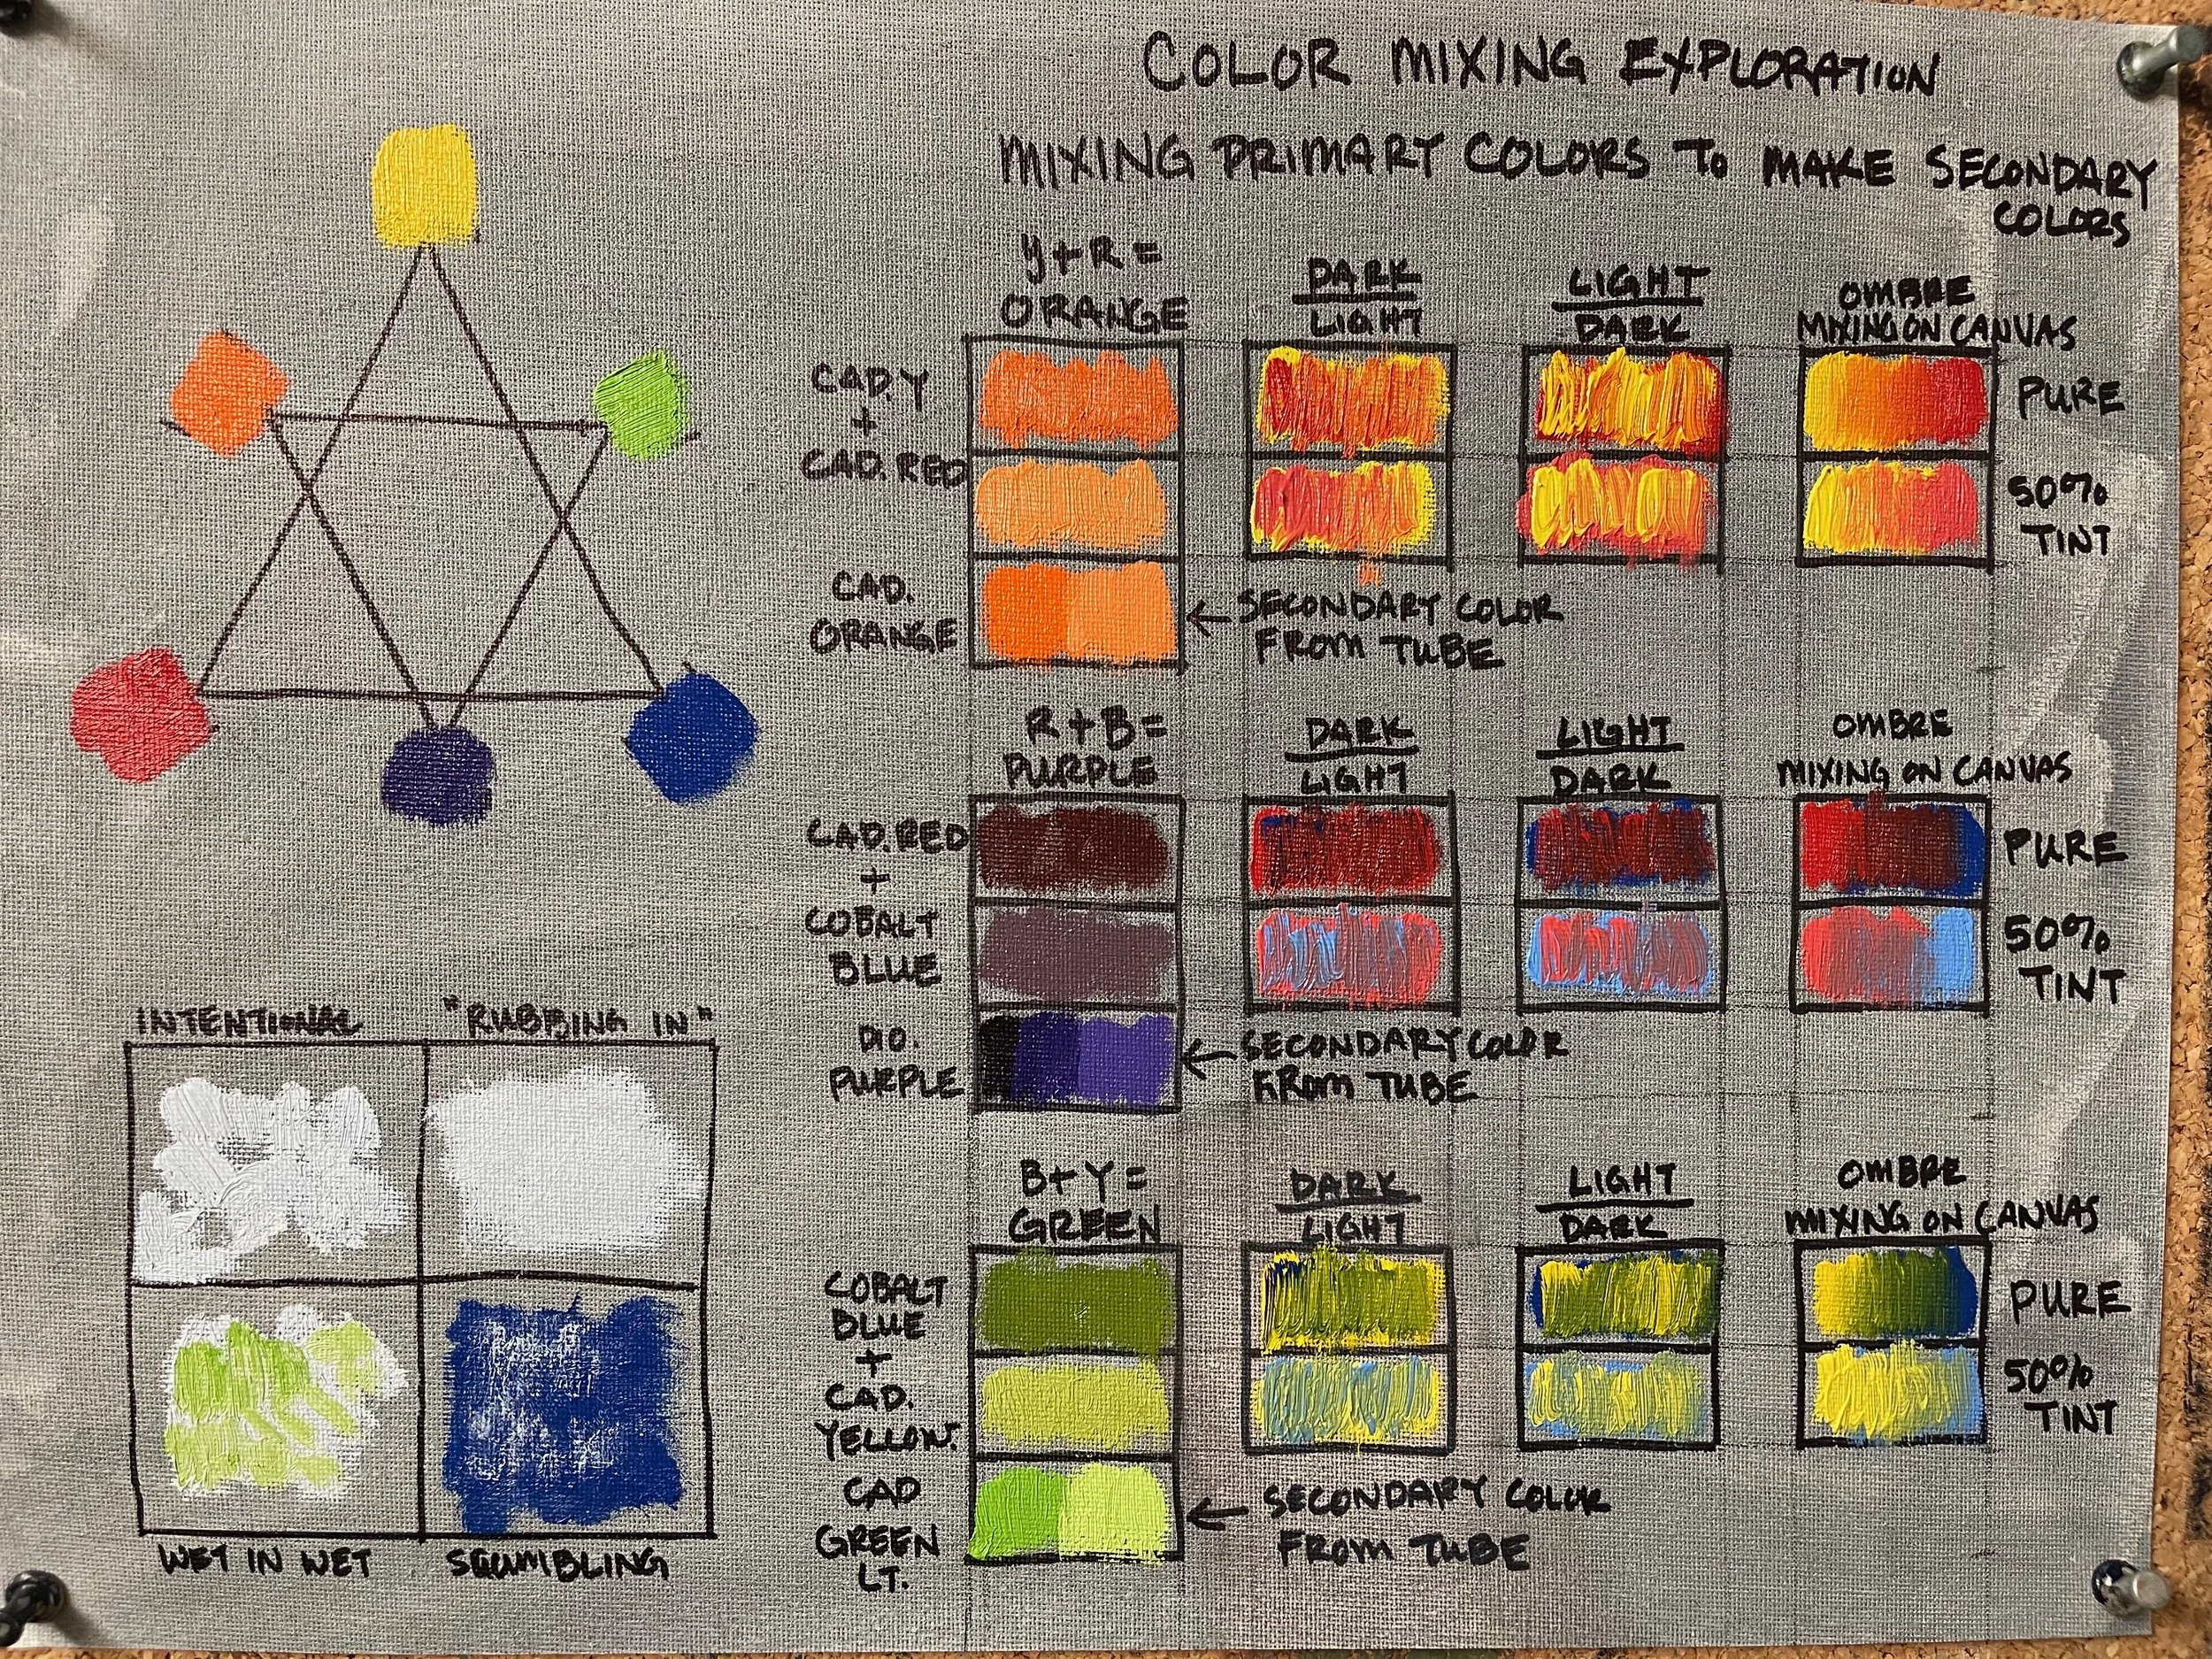 COLOR MIXING EXPLORATION
MIXING PRIMARY COLORS TO MAKE SECONDARY
COLORS
Y+R =
ORANGE
DARK
LIGHT
LIGHT
DARK
OMBRE
MIXING ON CANVAS
CAD.Y
+
CAD.RED
PURE
50%
TINT
CAD.
ORANGE
← SECONDARY COLOR
FROM TUBE
R+B=
PURPLE
DARK
LIGHT
LIGHT
DARK
OMBRE
MIXING ON CANVAS
CAD.RED
+
COBALT
BLUE
PURE
50%
TINT
DIO.
PURPLE
← SECONDARY COLOR
FROM TUBE
B+Y=
GREEN
DARK
LIGHT
LIGHT
DARK
OMBRE
MIXING ON CANVAS
COBALT
BLUE
+
CAD.
YELLOW.
PURE
50%
TINT
CAD
GREEN
LT.
← SECONDARY COLOR
FROM TUBE
INTENTIONAL
"RUBBING IN"
WET IN WET
SCUMBLING